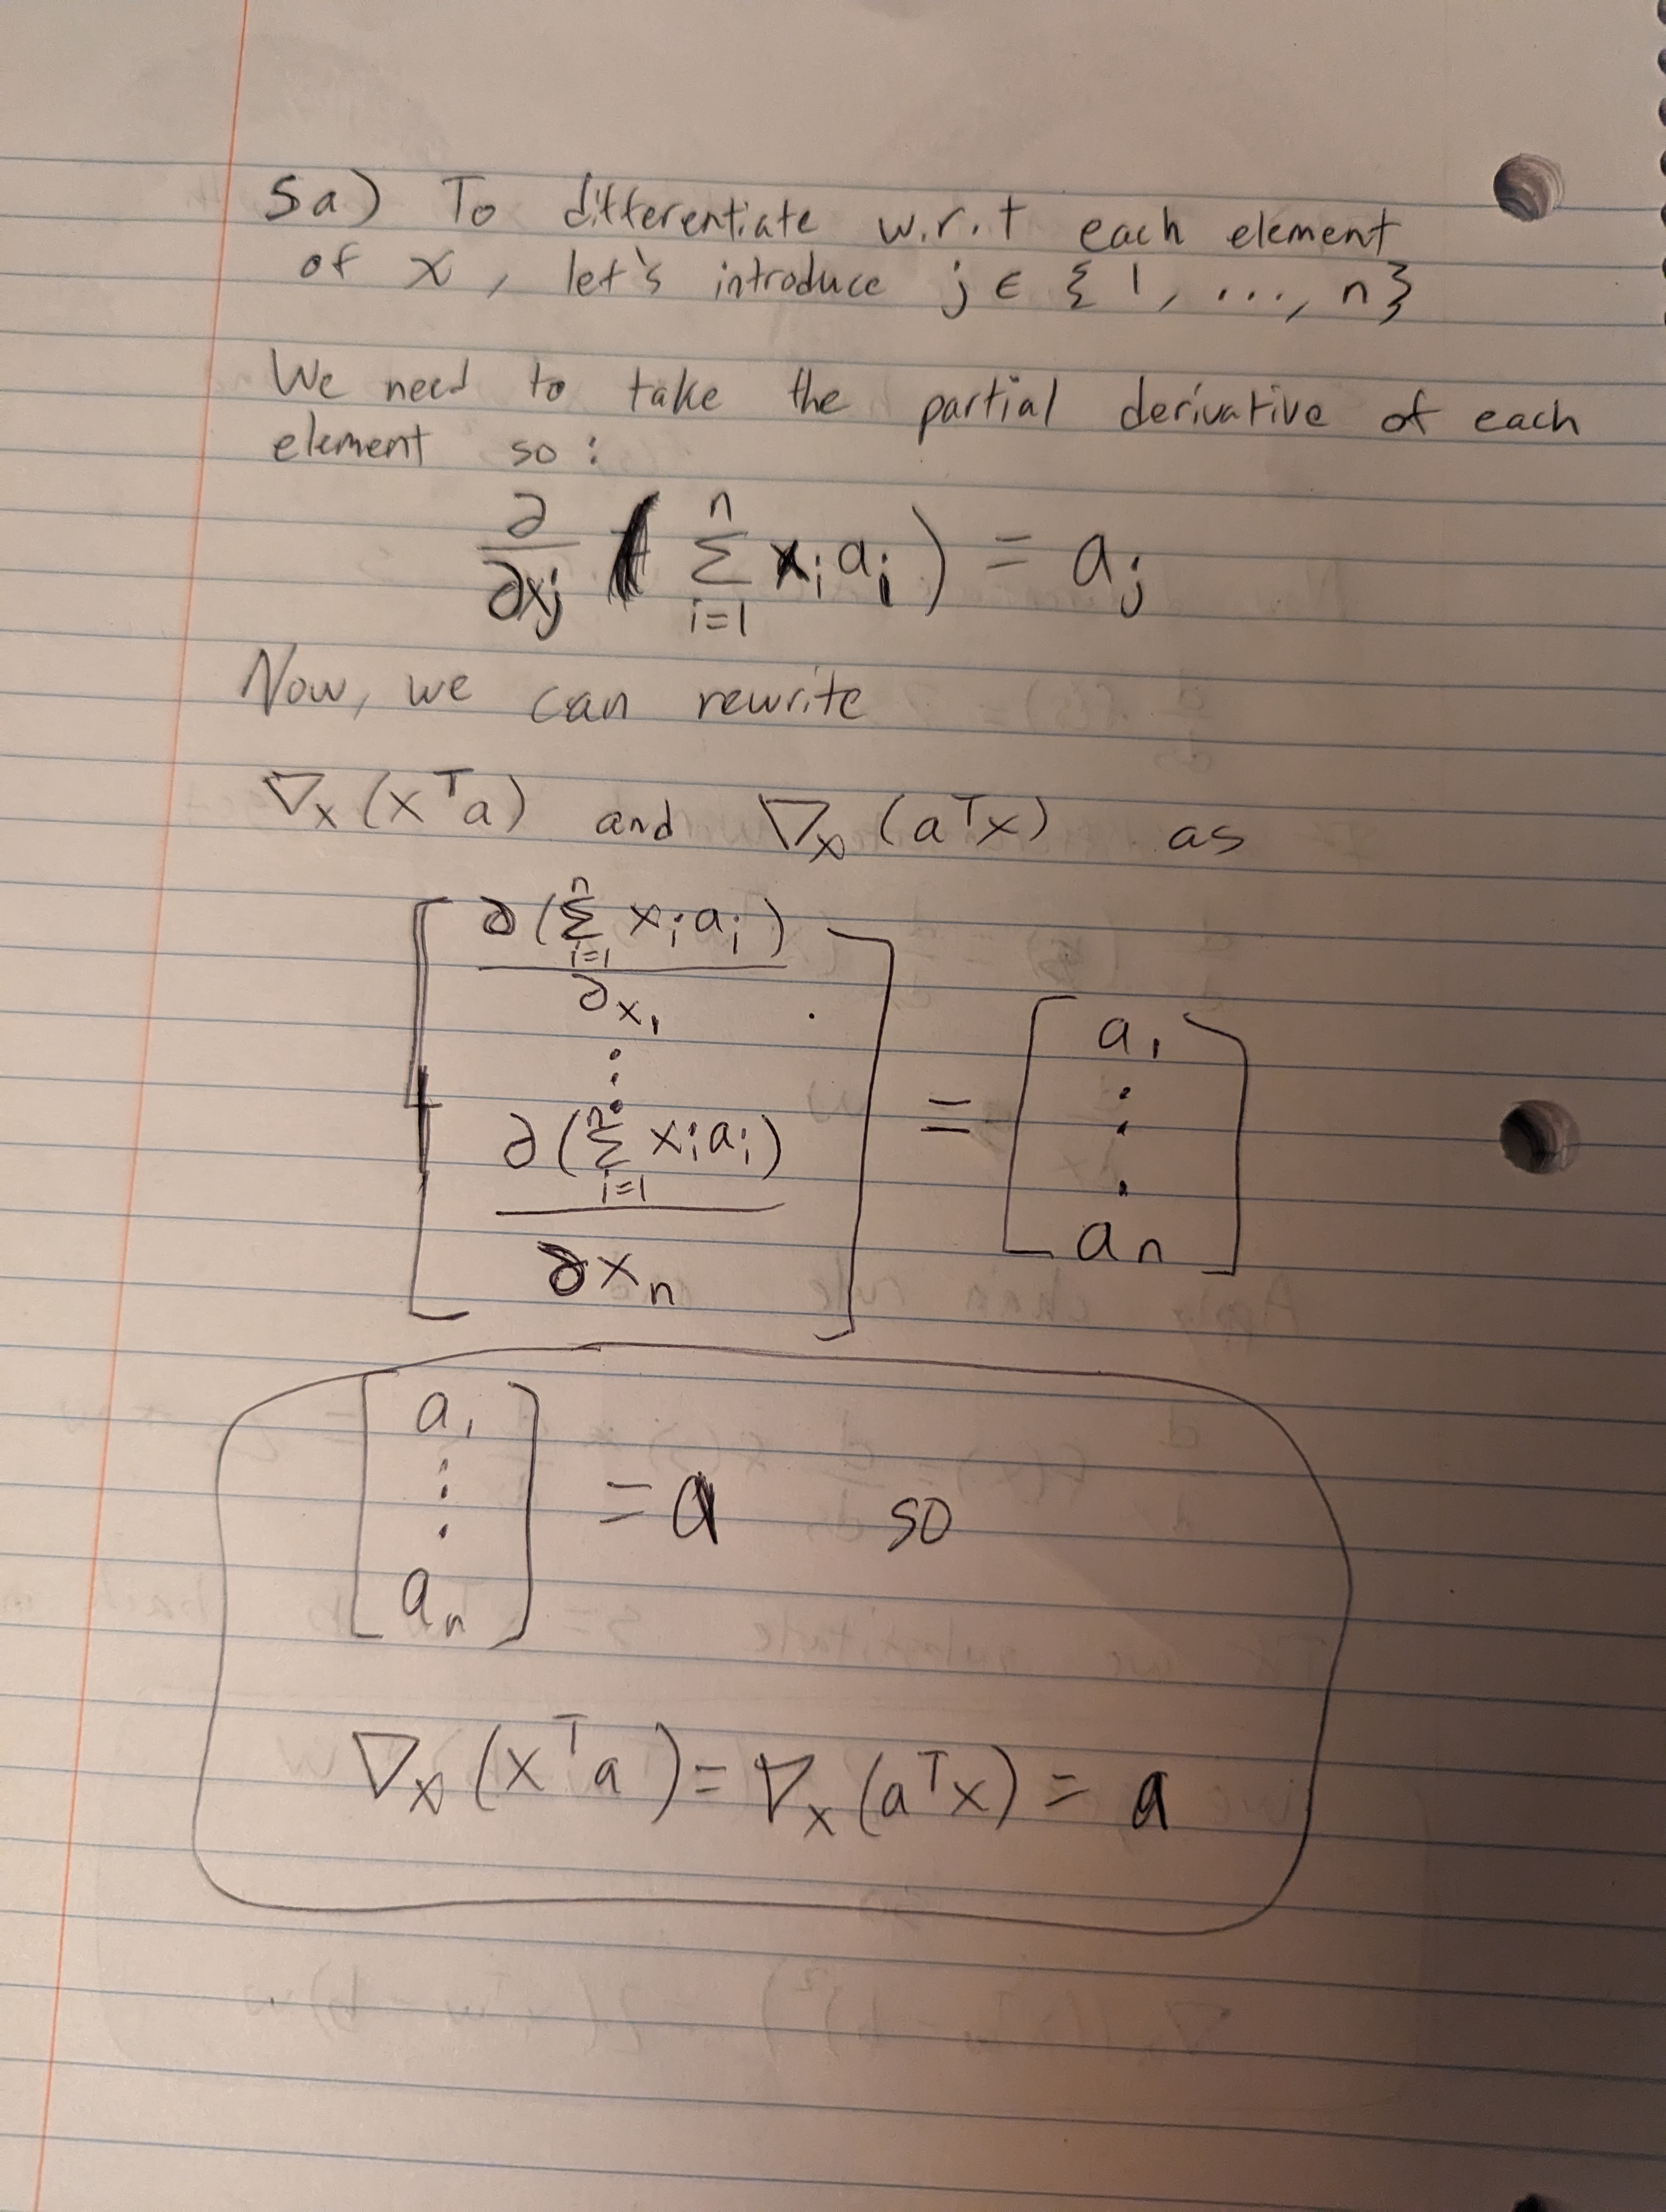 5a) To differentiate w.r.t each element
of x, let's introduce j ∈ {1, ..., n}
We need to take the partial derivative of each
element so:
∂/∂xj ( n Σ i=1 xi ai ) = aj
Now, we can rewrite
∇x (xᵀa) and ∇x (aᵀx) as
[ ∂( n Σ i=1 xi ai ) / ∂x1 ⋮ ∂( n Σ i=1 xi ai ) / ∂xn ] = [ a1 ⋮ an ]
[ a1 ⋮ an ] = a so
∇x (xᵀa) = ∇x (aᵀx) = a